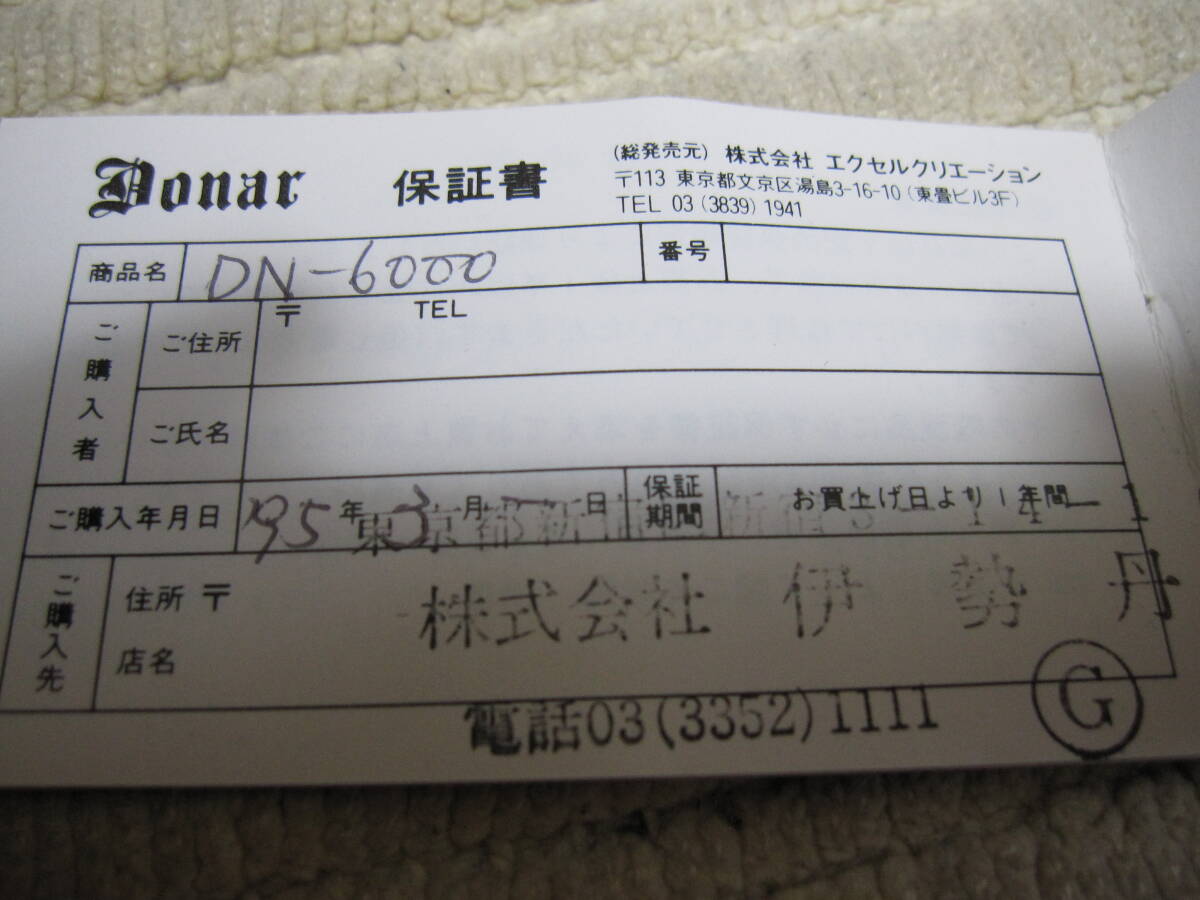 Donar 保証書
(総発売元) 株式会社 エクセルクリエーション
〒113 東京都文京区湯島3-16-10 (東畳ビル3F)
TEL 03 (3839) 1941
商品名 DN-6000 番号
ご購入者
ご住所 〒 TEL
ご氏名
ご購入年月日 '95年 3月 日 保証期間 お買上げ日より1年間
東京都新宿区新宿3-14-1
ご購入先
住所 〒
店名
株式会社 伊勢丹
電話03(3352)1111
G